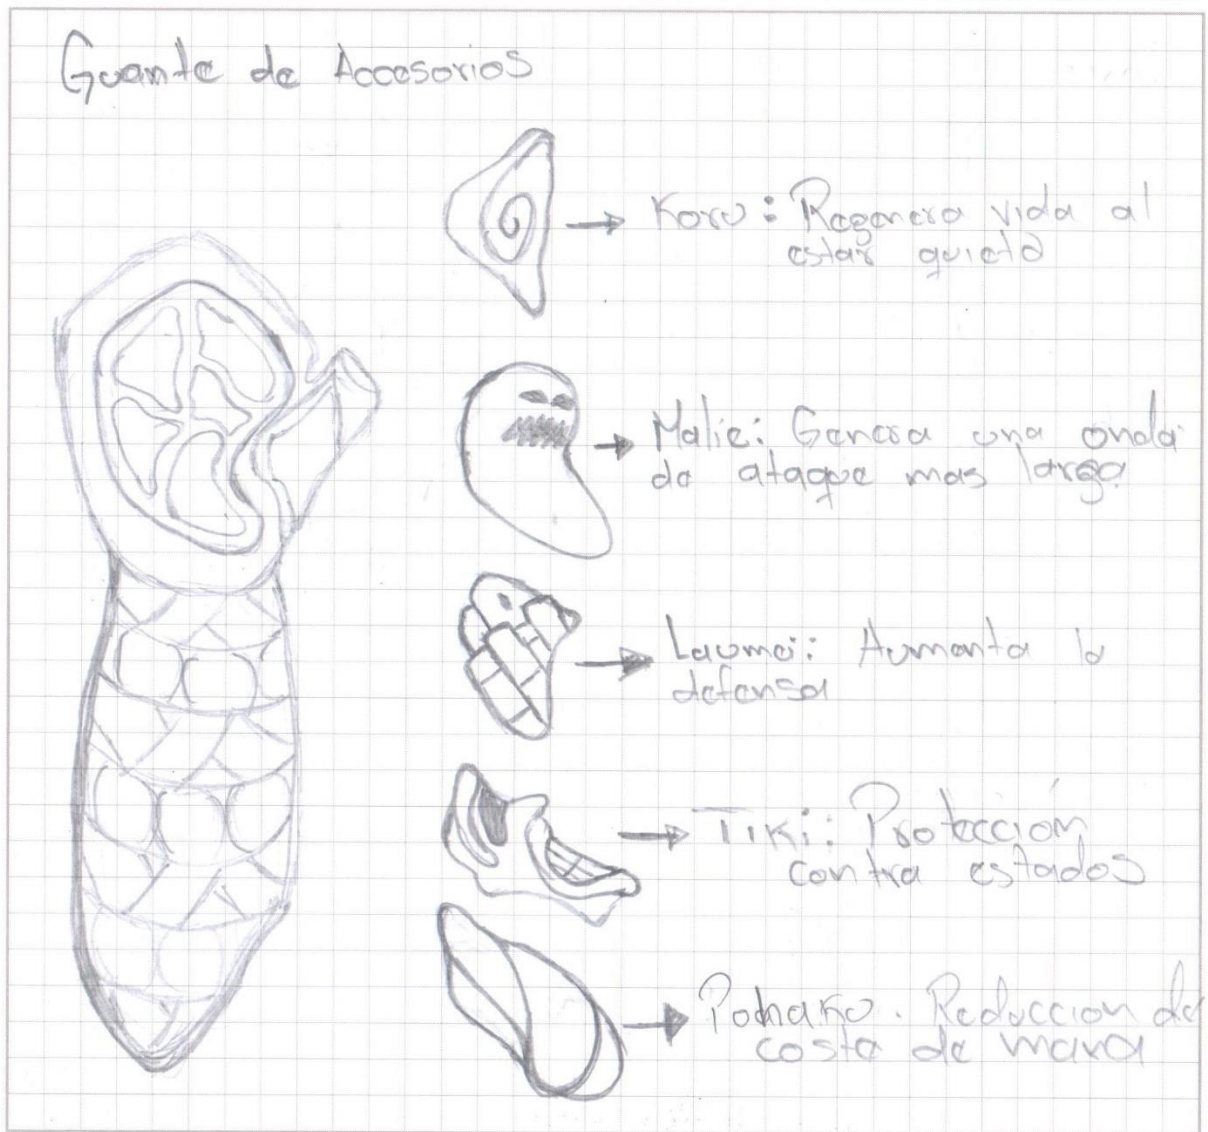 Guante de Accesorios
Koru: Regenera vida al
estar quieto
Malie: Genera una onda
de ataque mas larga
Laumei: Aumenta la
defensa
Tiki: Protección
contra estados
Pohaku. Reduccion de
coste de mana